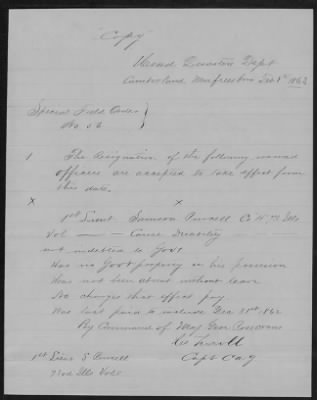 "Copy"
Head Quarters Dept
Cumberland Murfreesboro Feb 1st 1863
Special Field Orders
No 32
1 The resignation of the following named
officers are accepted to take effect from
this date.
x x
1st Lieut Samson Purcell Co H 73 Ills
Vol — — Cause Disability
not indebted to Govt.
Has no Govt property in his possession
Has not been absent without leave
No charges that effect pay.
Was last paid to include Dec 31st 1862
By Command of Maj Gen Rosecrans
Capt &
1st Lieut S Purcell
73rd Ills Vols